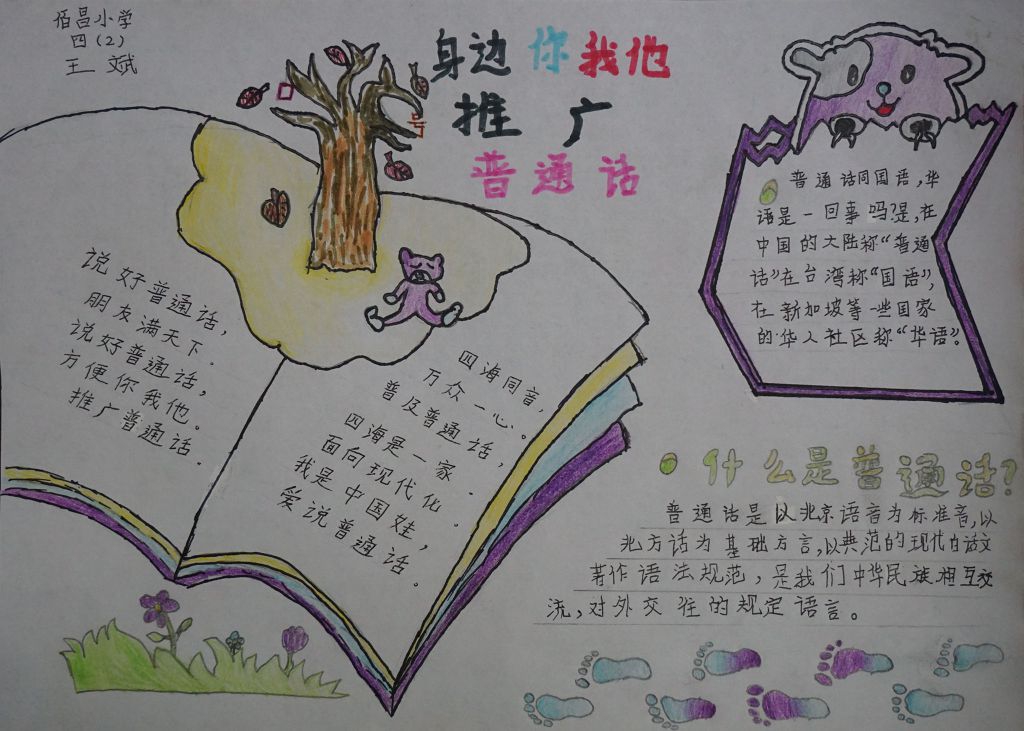 佰昌小学
四(2)
王斌
身边你我他
推广
普通话
说好普通话,
朋友满天下.
说好普通话,
方便你我他。
推广普通话.
四海同音,
万众一心。
普及普通话,
四海是一家.
面向现代化.
我是中国娃,
爱说普通话.
普通话同国语,华
语是一回事吗?是,在
中国的大陆称“普通
话”在台湾称“国语”,
在新加坡等一些国家
的华人社区称“华语”。
什么是普通话?
普通话是以北京语音为标准音,以
北方话为基础方言,以典范的现代白话文
著作语法规范,是我们中华民族相互交
流,对外交往的规定语言。